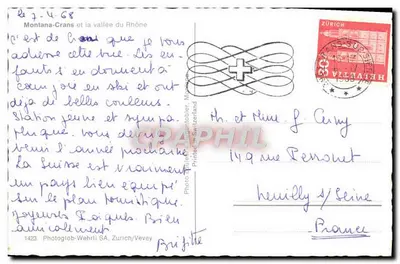 le 7-4-68
Montana-Crans et la vallée du Rhône
C'est de que je vous
adresse cette vue. Les en-
fants s'en donnent à
cœur joie en ski et ont
déjà de belles couleurs.
Station jeune et sympa-
thique. Vous devriez
venir l'année prochaine
La Suisse est vraiment
un pays bien équipé
sur le plan touristique.
Joyeuses Pâques. Bien
amicalement
Brigitte
1423 Photoglob-Wehrli SA, Zürich/Vevey
ZÜRICH
30
HELVETIA
PHILARTIE
M. et Mme G.
149 rue Perronet
Neuilly s/ Seine
France